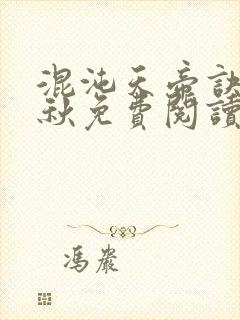 混沌天帝訣
秋免費閱讀
馮嚴